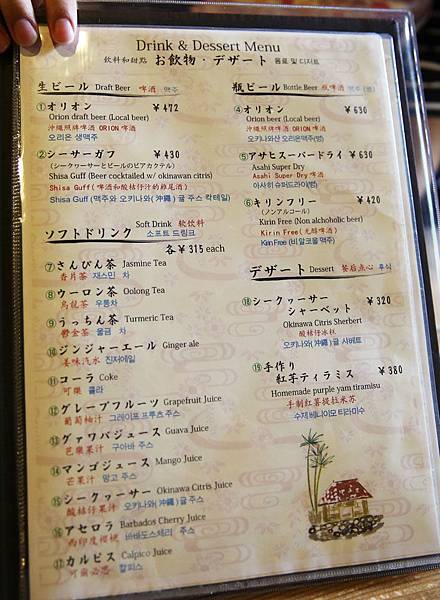 Drink & Dessert Menu
飲料和甜點 お飲物・デザート 음료 및 디저트
生ビール Draft Beer 啤酒 맥주
①オリオン ￥472
Orion draft beer (Local beer)
沖縄照牌啤酒 ORION 啤酒
오리온 생맥주
②シーサーガフ ￥430
(シークヮーサーとビールのビアカクテル)
Shisa Guff (Beer cocktailed w/ okinawan citris)
Shisa Guff(啤酒和酸桔仔汁的雞尾酒)
Shisa Guff (맥주와 오키나와(沖縄) 귤 주스 칵테일)
ソフトドリンク Soft Drink 软饮料
소프트 드링크
各￥315 each
⑦さんぴん茶 Jasmine Tea
香片茶 재스민 차
⑧ウーロン茶 Oolong Tea
烏龍茶 우롱차
⑨うっちん茶 Turmeric Tea
鬱金茶 울금 차
⑩ジンジャーエール Ginger ale
姜味汽水 진저에일
⑪コーラ Coke
可樂 콜라
⑫グレープフルーツ Grapefruit Juice
葡萄柚汁 그레이프 프루츠 주스
⑬グァワバジュース Guava Juice
芭樂果汁 구아바 주스
⑭マンゴジュース Mango Juice
芒果汁 망고 주스
⑮シークヮーサー Okinawa Citris Juice
酸桔仔果汁 오키나와(沖縄) 귤 주스
⑯アセロラ Barbados Cherry Juice
西印度櫻桃 바바도스체리 주스
⑰カルピス Calpico Juice
可爾必思 칼피스
瓶ビール Bottle Beer 瓶啤酒 맥주 (병)
④オリオン ￥630
Orion beer (Local beer)
沖縄照牌啤酒 ORION 啤酒
오키나와산 오리온맥주(병)
⑤アサヒスーパードライ ￥630
Asahi Super Dry
Asahi Super Dry 啤酒
아사히 슈퍼드라이(병)
⑥キリンフリー ￥420
(ノンアルコール)
Kirin Free (Non alchoholic beer)
Kirin Free(无醇啤酒)
Kirin Free (비 알코올 맥주)
デザート Dessert 餐后点心 후식
⑱シークヮーサー
シャーベット ￥320
Okinawa Citris Sherbert
酸桔仔冰糕
오키나와(沖縄) 귤 샤베트
⑲手作り
紅芋ティラミス ￥380
Homemade purple yam tiramisu
手制红薯提拉米苏
수제 베니이모 티라미수